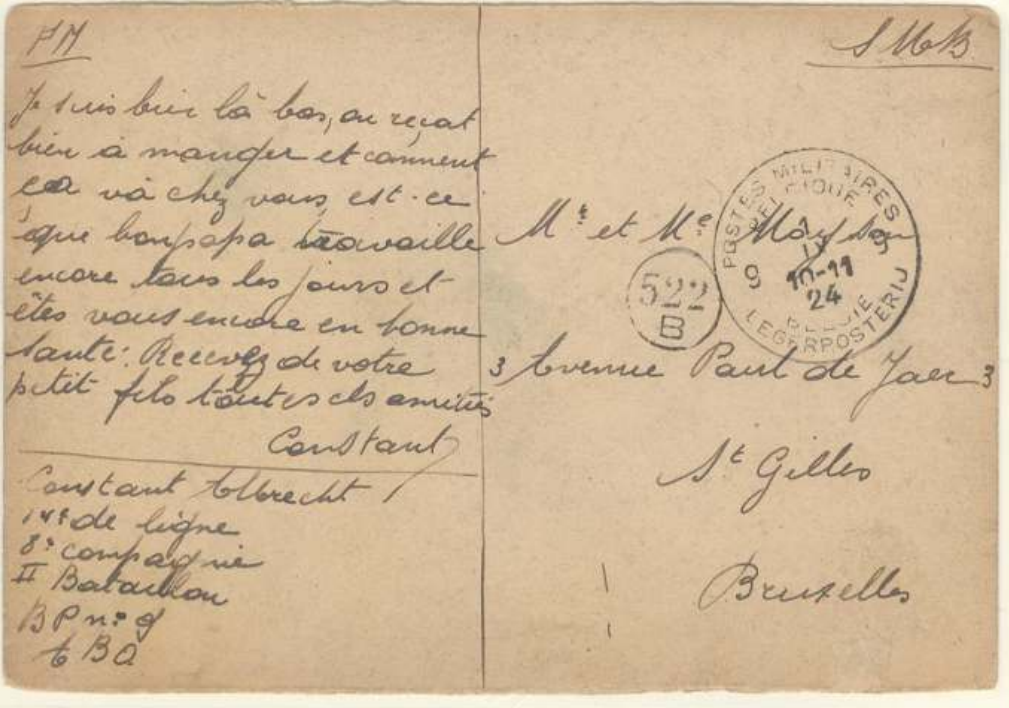 PM
Je suis bien là bas, on reçoit
bien à manger et comment
ça va chez vous est-ce
que bonpapa travaille
encore tous les jours et
êtes vous encore en bonne
santé: Recevez de votre
petit fils toutes ses amitiés
Constant
Constant Albrecht
de ligne
8e compagnie
II Bataillon
BP n° 9
A B O
S M B
Mr et Me
POSTES MILITAIRES
BELGIQUE
9 9
1
IV
10-11
24
BELGIE
LEGERPOSTERIJ
522
B
3 Avenue Paul de Jaer 3
St Gilles
Bruxelles